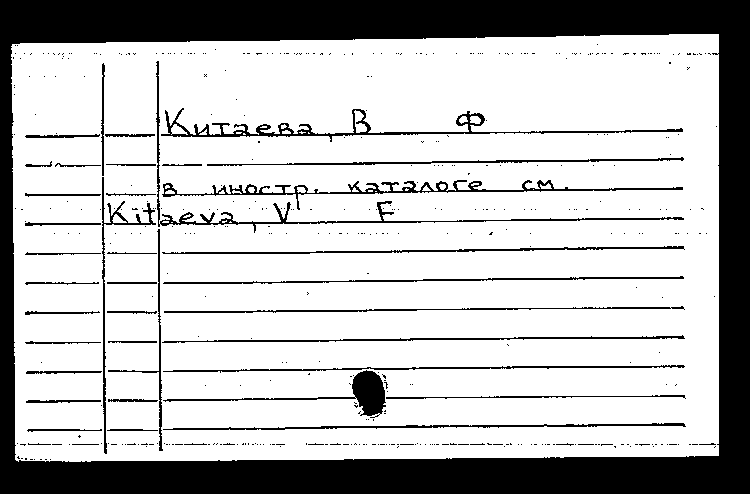 Китаева, В Ф
в иностр. каталоге см.
Kitaeva, V F